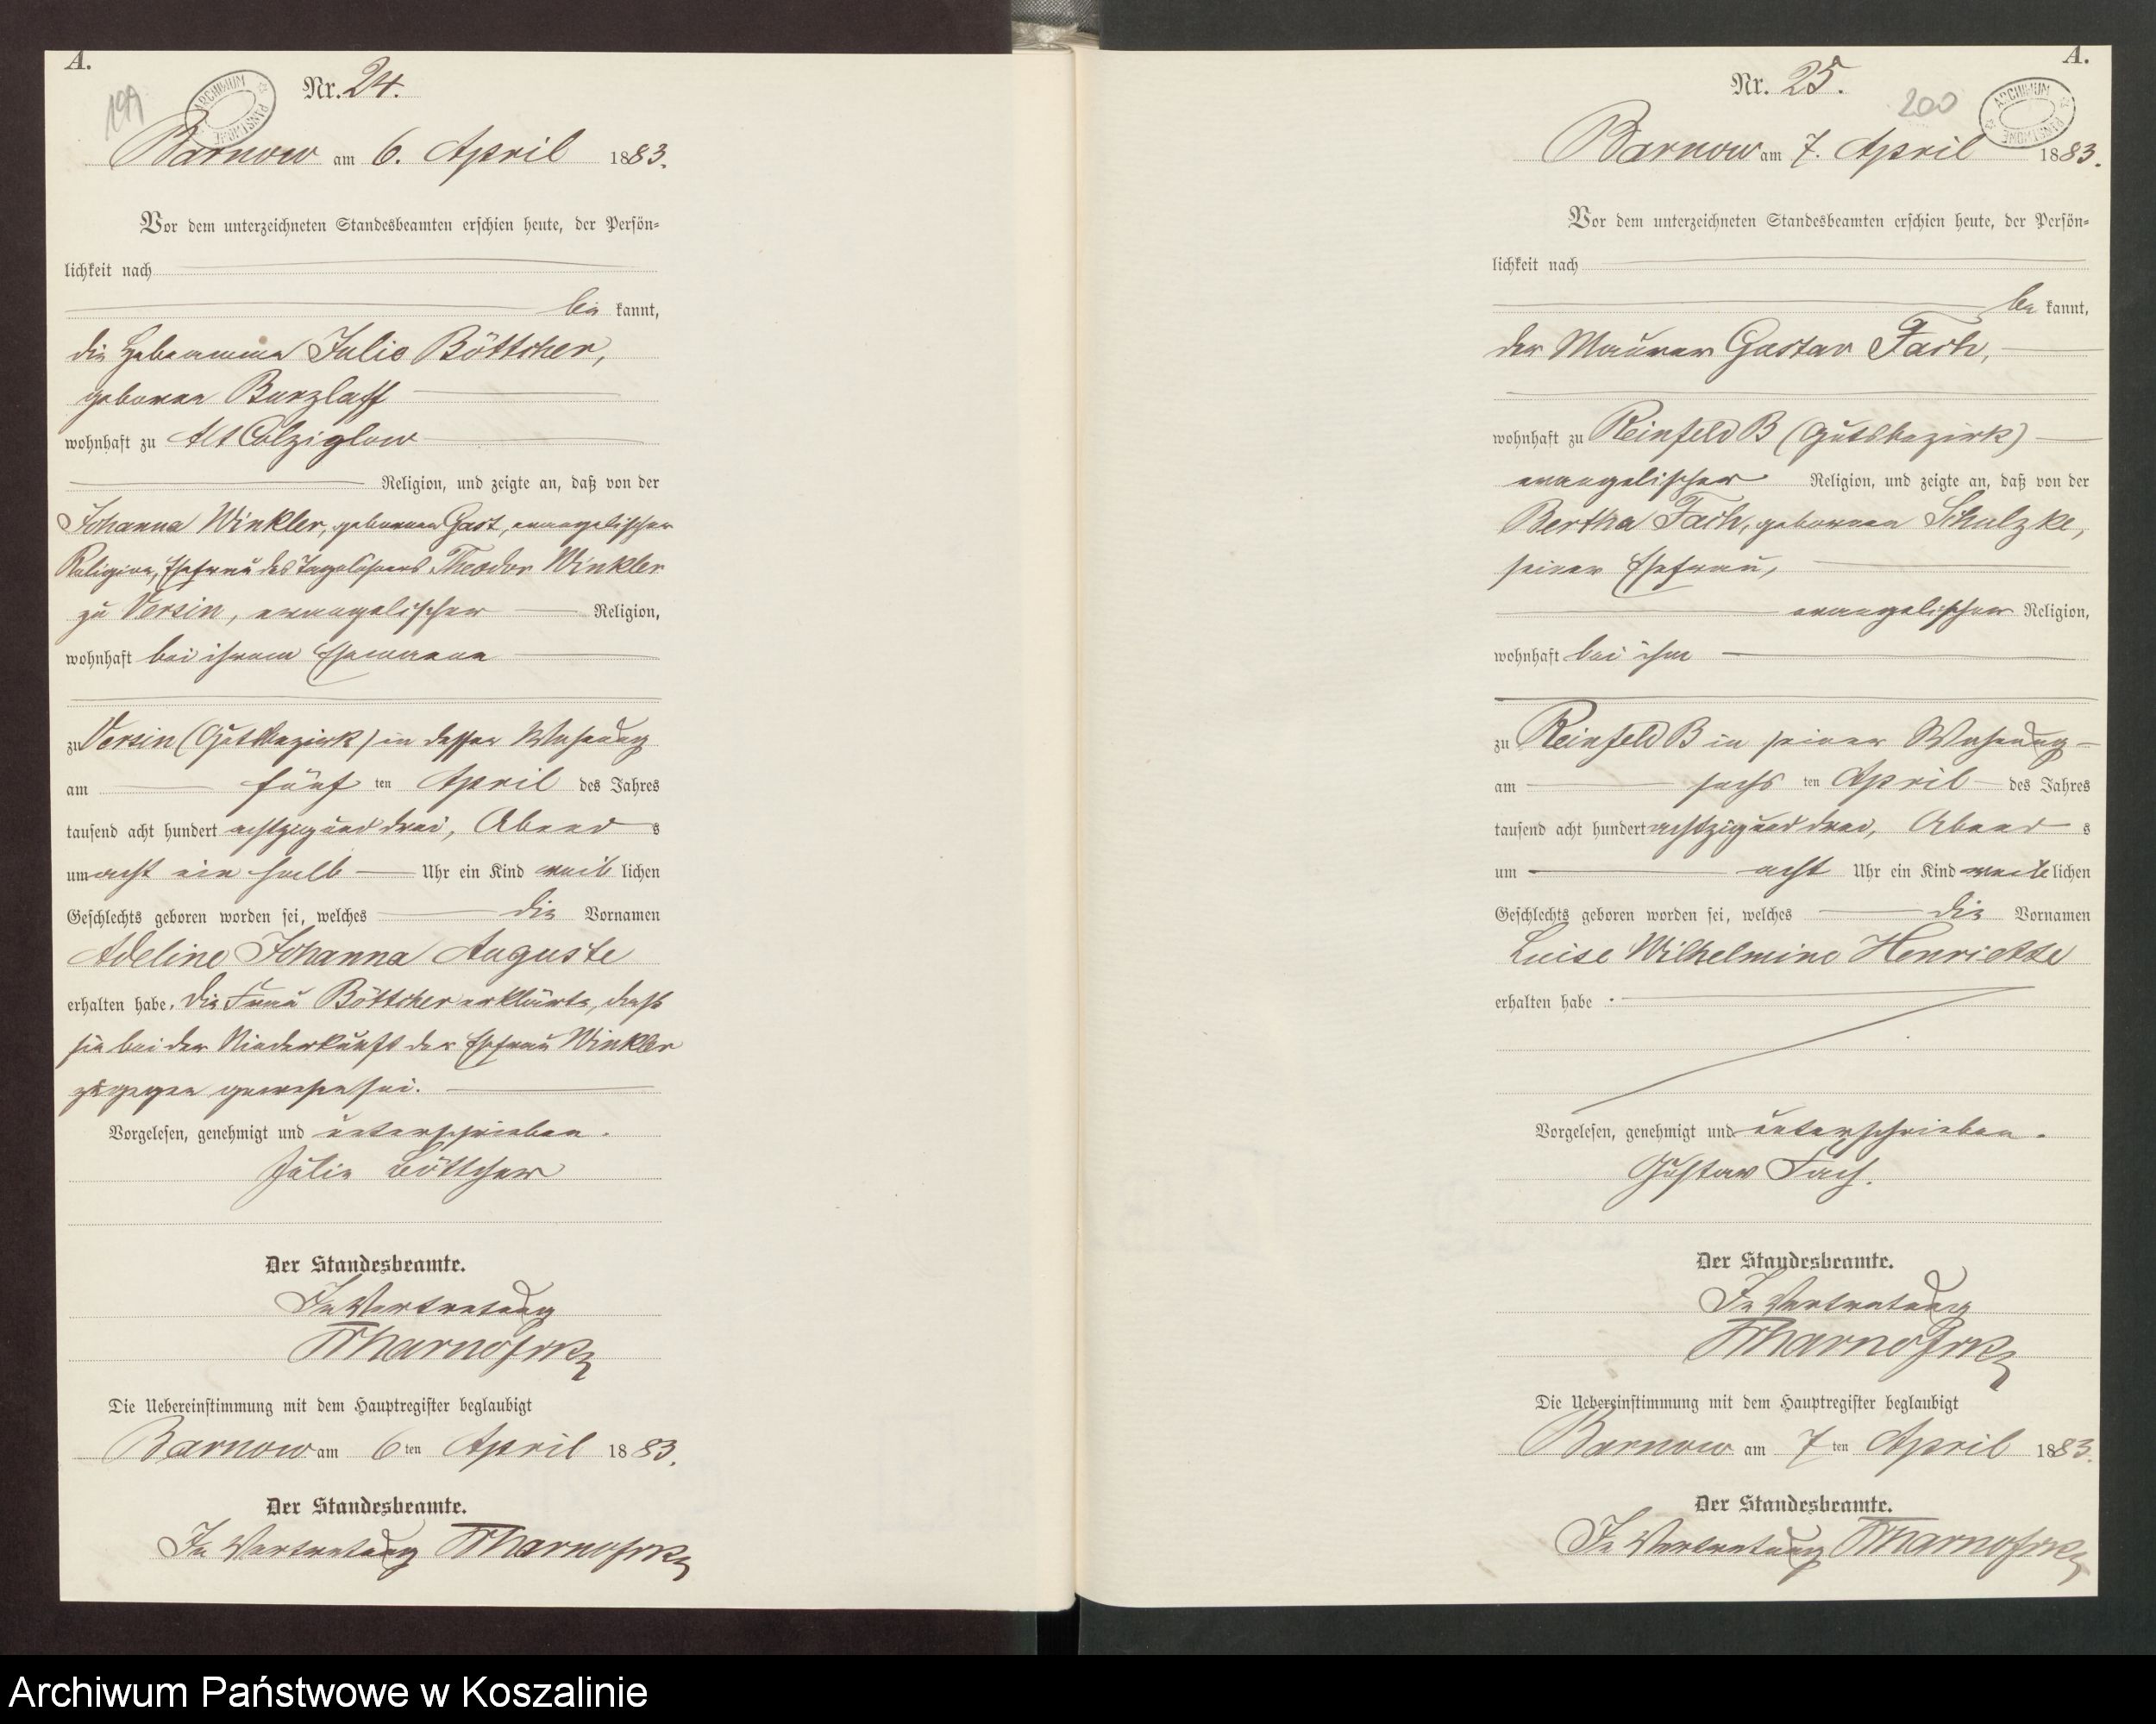 A.
199
ARCHIWUM PAŃSTWOWE
Nr. 24.
Barnow am 6. April 1883.
Vor dem unterzeichneten Standesbeamten erschien heute, der Persön-
lichkeit nach
be kannt,
die Hebeamme Julie Böttcher,
geborene Burzlaff
wohnhaft zu Alt Colziglow
Religion, und zeigte an, daß von der
Johanna Winkler, geborenen Gast, evangelischer
Religion, Ehefrau des Tagelöhners Theodor Winkler
zu Versin, evangelischer Religion,
wohnhaft bei ihrem Ehemanne
zu Versin (Gutsbezirk) in dessen Wohnung
am fünf ten April des Jahres
tausend acht hundert achtzig und drei, Abend s
um acht ein halb Uhr ein Kind weib lichen
Geschlechts geboren worden sei, welches die Vornamen
Adeline Johanna Auguste
erhalten habe. Die Frau Böttcher erklärte, daß
sie bei der Niederkunft der Ehefrau Winkler
zugegen gewesen sei.
Vorgelesen, genehmigt und unterschrieben.
Julie Böttcher
Der Standesbeamte.
In Vertretung
Die Uebereinstimmung mit dem Hauptregister beglaubigt
Barnow am 6 ten April 1883.
Der Standesbeamte.
In Vertretung
A.
Nr. 25.
200
ARCHIWUM PAŃSTWOWE
Barnow am 7. April 1883.
Vor dem unterzeichneten Standesbeamten erschien heute, der Persön-
lichkeit nach
be kannt,
der Maurer Gustav Fach,
wohnhaft zu Reinfeld B (Gutsbezirk)
evangelischer Religion, und zeigte an, daß von der
Bertha Fach, geborenen Schulzke,
seiner Ehefrau,
evangelischer Religion,
wohnhaft bei ihm
zu Reinfeld B in seiner Wohnung
am sechs ten April des Jahres
tausend acht hundert achtzig und drei, Abend s
um acht Uhr ein Kind weib lichen
Geschlechts geboren worden sei, welches die Vornamen
Luise Wilhelmine Henriette
erhalten habe.
Vorgelesen, genehmigt und unterschrieben.
Gustav Fach.
Der Standesbeamte.
In Vertretung
Die Uebereinstimmung mit dem Hauptregister beglaubigt
Barnow am 7 ten April 1883.
Der Standesbeamte.
In Vertretung
Archiwum Państwowe w Koszalinie